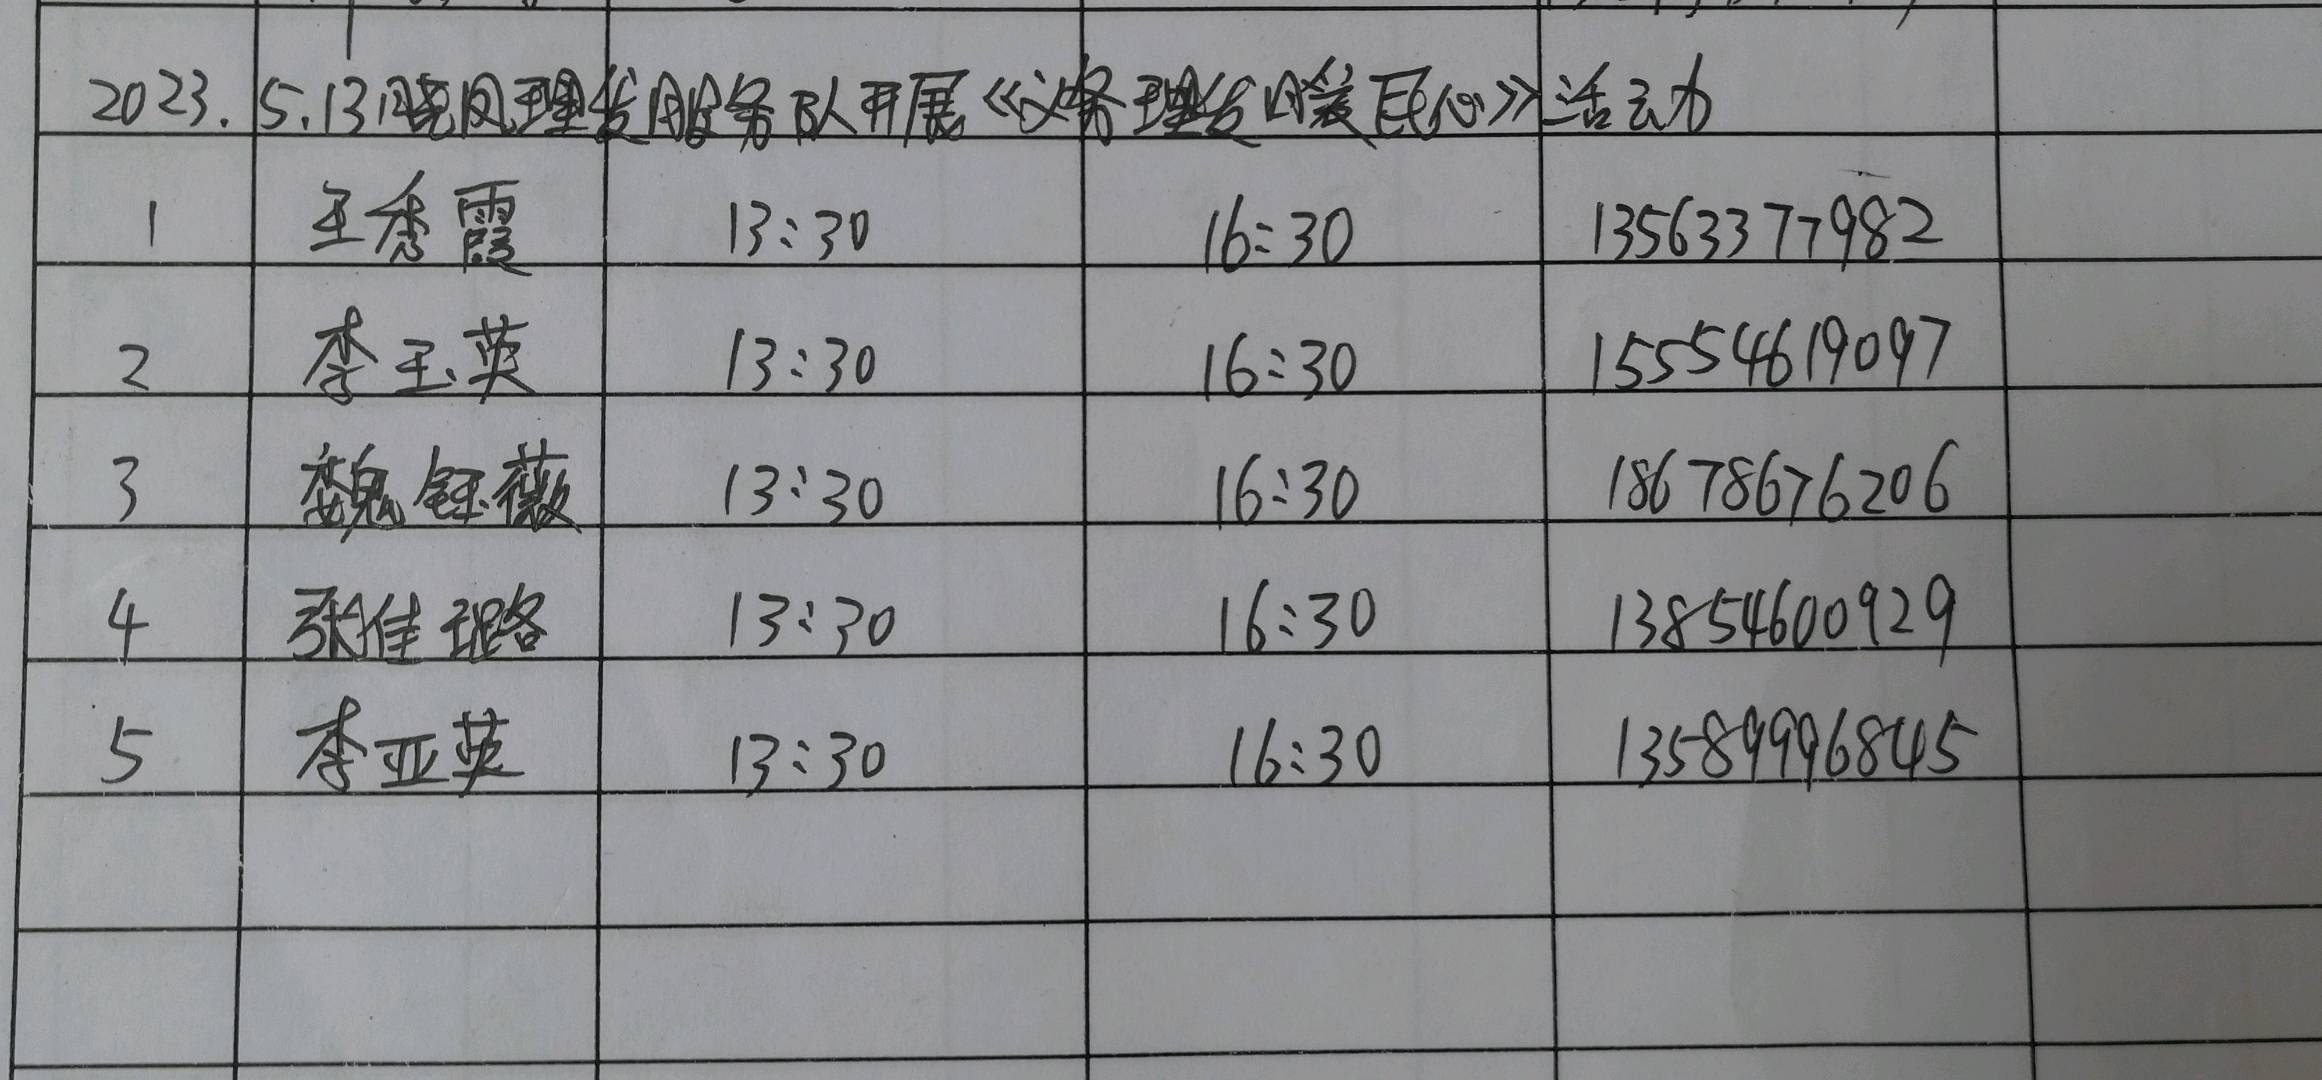 2023.5.13晓风理发服务队开展《义务理发暖民心》活动
1 王秀霞 13:30 16:30 13563377982
2 李玉英 13:30 16:30 15554619097
3 魏钰薇 13:30 16:30 18678676206
4 张佳璐 13:30 16:30 13854600929
5 李亚英 13:30 16:30 13589996845